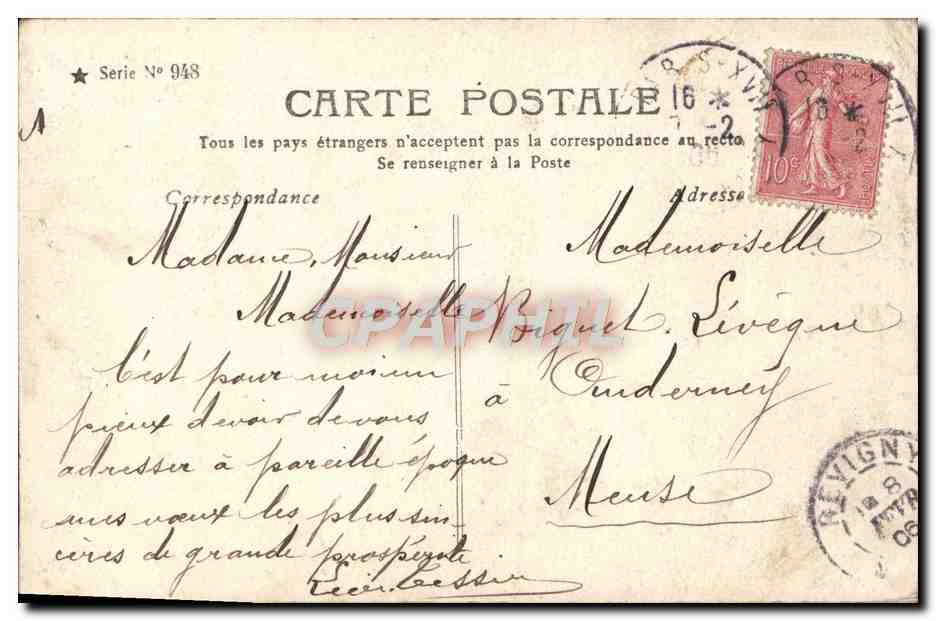 ★ Serie N° 948
CARTE POSTALE
Tous les pays étrangers n'acceptent pas la correspondance au recto
Se renseigner à la Poste
Correspondance
Adresse
16 *
-2
10c
Madame, Monsieur
Mademoiselle
C'est pour moi un
pieux devoir de vous
adresser à pareille époque
mes vœux les plus sin-
cères de grande prospérité
Mademoiselle
Lévêque
à
Meuse
REVIGNY
8
06
CPAPHIL